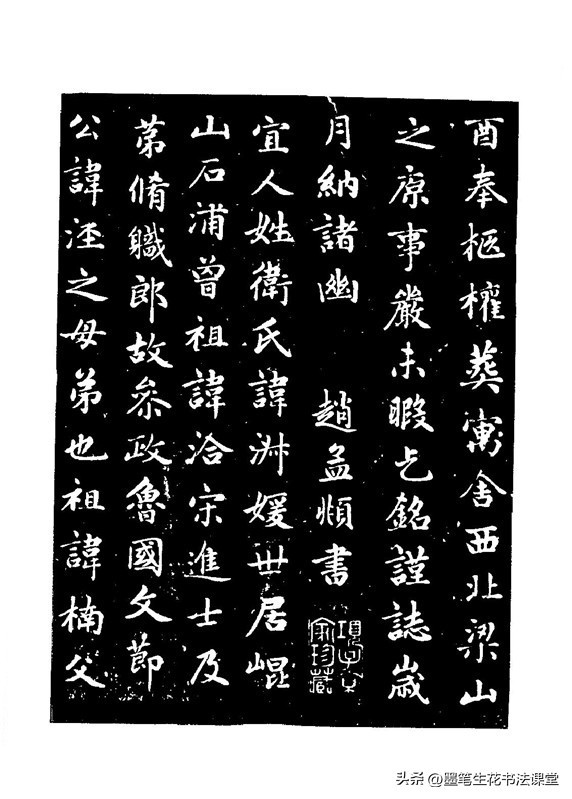 酉奉柩權葬寓舍西北梁山
之原事嚴未暇乞銘謹誌歲
月納諸幽　趙孟頫書
項子京家珍藏
宜人姓衛氏諱淑媛世居崐
山石浦曾祖諱洽宋進士及
第脩職郎故叅政魯國文節
公諱涇之母弟也祖諱楠父
头条@墨笔生花书法课堂